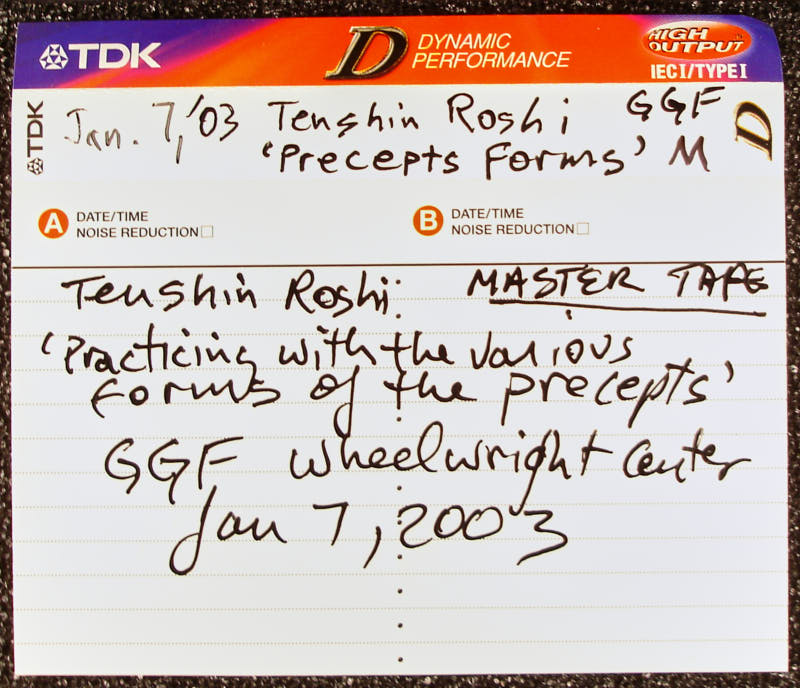 TDK D DYNAMIC PERFORMANCE HIGH OUTPUT IEC I/TYPE I
TDK Jan. 7, '03 Tenshin Roshi GGF D
'Precepts Forms' M
A DATE/TIME NOISE REDUCTION B DATE/TIME NOISE REDUCTION
Tenshin Roshi: MASTER TAPE
'Practicing with the various
forms of the precepts'
GGF Wheelwright Center
Jan 7, 2003